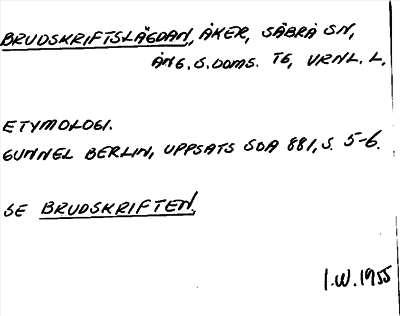 BRUDSKRIFTSLÄGDAN, ÅKER, SÄBRÅ SN,
ÅNG. S. DOMS. TG, VRNL. L,
ETYMOLOGI.
GUNNEL BERLIN, UPPSATS SOA 881, S. 5-6.
SE BRUDSKRIFTEN,
I.W. 1955